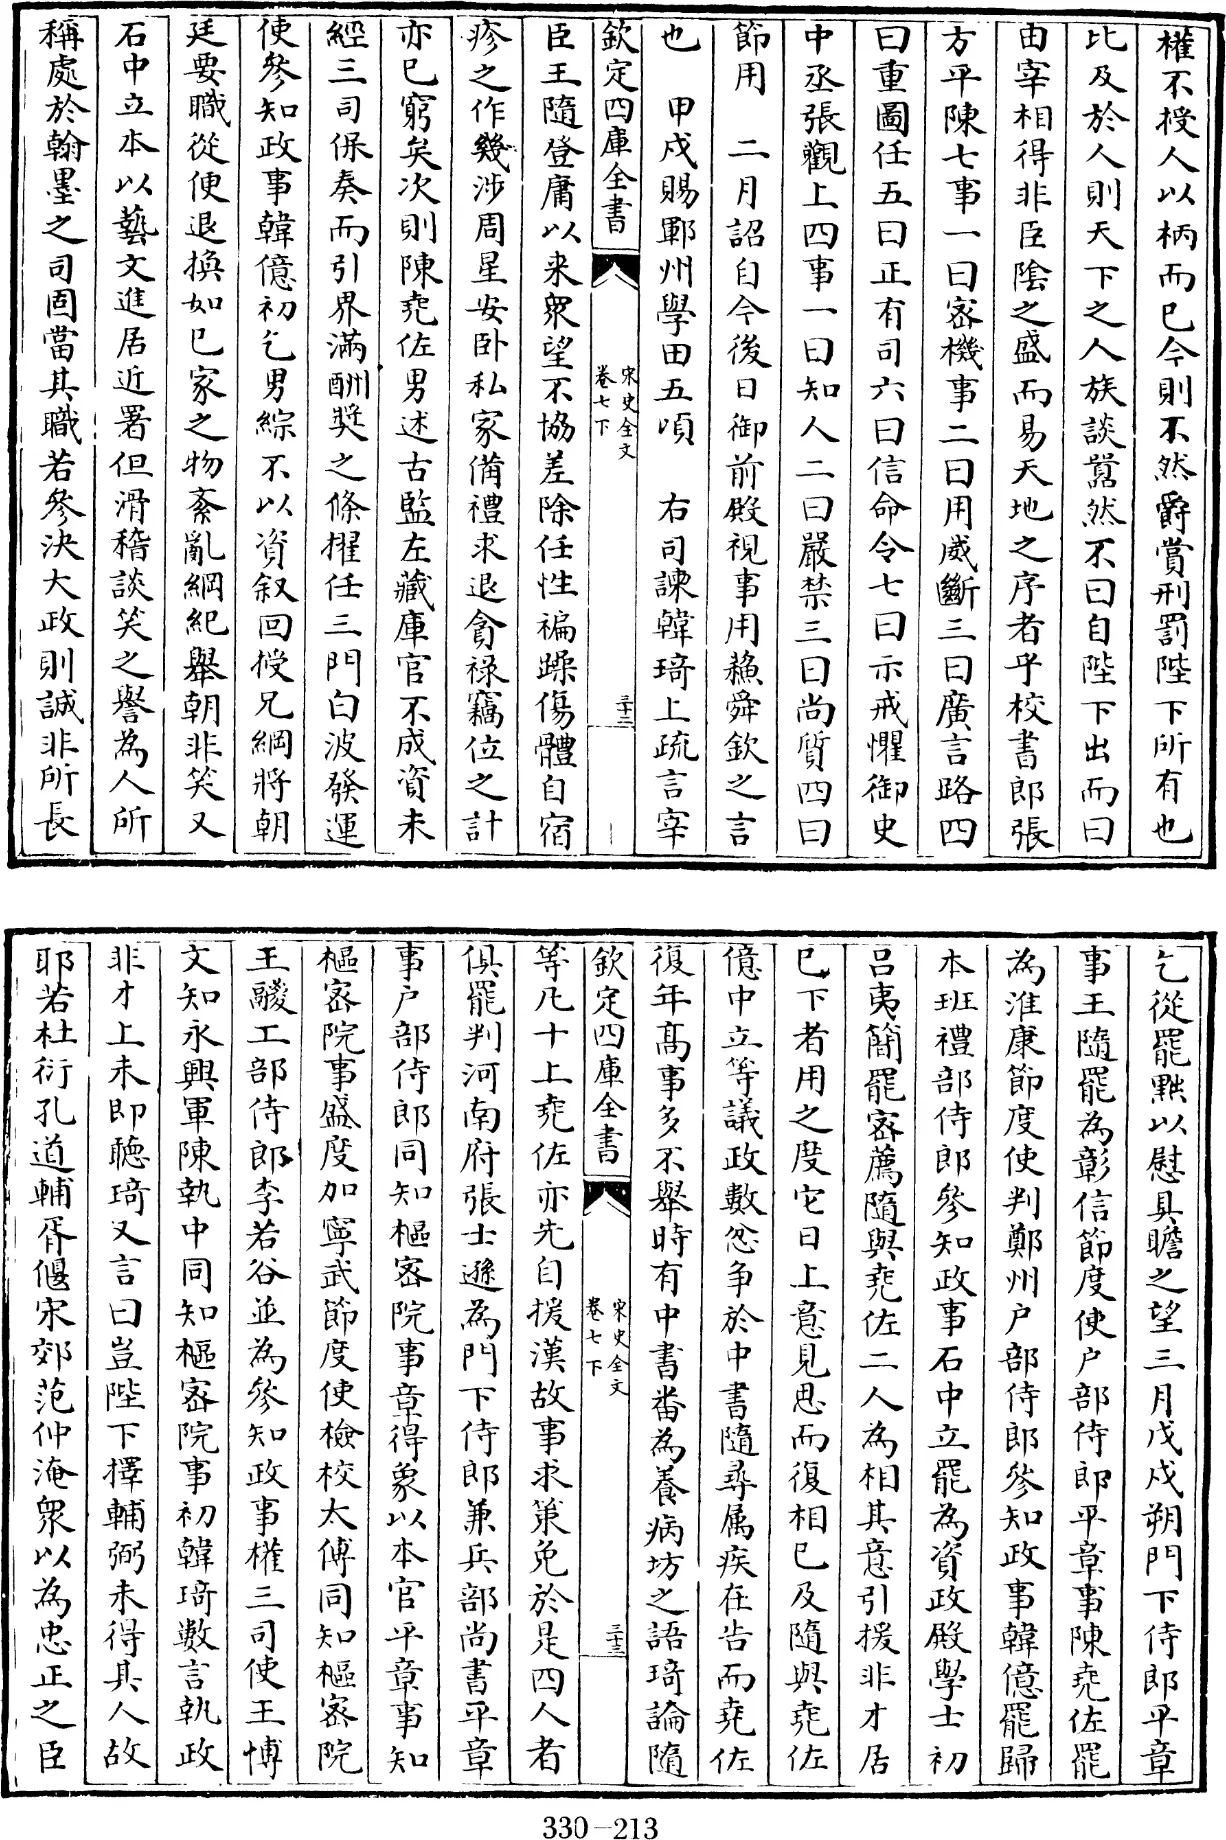 權不授人以柄而已今則不然爵賞刑罰陛下所有也
比及於人則天下之人族談囂然不曰自陛下出而曰
由宰相得非臣陰之盛而易天地之序者乎校書郎張
方平陳七事一曰宻機事二曰用威斷三曰廣言路四
曰重圖任五曰正有司六曰信命令七曰示戒懼御史
中丞張觀上四事一曰知人二曰嚴禁三曰尚質四曰
節用　二月詔自今後日御前殿視事用蘓舜欽之言
也　甲戌賜鄆州學田五頃　右司諫韓琦上疏言宰
欽定四庫全書
宋史全文
卷七下
三十二
臣王隨登庸以来衆望不協差除任性褊躁傷體自宿
疹之作幾涉周星安卧私家備禮求退貪禄竊位之計
亦已窮矣次則陳堯佐男述古監左藏庫官不成資未
經三司保奏而引界滿酬奬之條擢任三門白波發運
使參知政事韓億初乞男綜不以資叙回授兄綱將朝
廷要職從便退換如已家之物紊亂綱紀舉朝非笑又
石中立本以藝文進居近署但滑稽談笑之譽為人所
稱處於翰墨之司固當其職若參決大政則誠非所長
乞從罷黜以慰具瞻之望三月戊戌朔門下侍郎平章
事王隨罷為彰信節度使户部侍郎平章事陳堯佐罷
為淮康節度使判鄭州户部侍郎參知政事韓億罷歸
本班禮部侍郎參知政事石中立罷為資政殿學士初
吕夷簡罷宻薦隨與堯佐二人為相其意引援非才居
已下者用之度它日上意見思而復相已及隨與堯佐
億中立等議政數忿争於中書隨尋屬疾在告而堯佐
復年髙事多不舉時有中書畨為養病坊之語琦論隨
欽定四庫全書
宋史全文
卷七下
三十三
等凡十上堯佐亦先自援漢故事求策免於是四人者
俱罷判河南府張士遜為門下侍郎兼兵部尚書平章
事户部侍郎同知樞宻院事章得象以本官平章事知
樞宻院事盛度加寧武節度使檢校太傅同知樞宻院
王鬷工部侍郎李若谷並為參知政事權三司使王博
文知永興軍陳執中同知樞宻院事初韓琦數言執政
非才上未即聽琦又言曰豈陛下擇輔弼未得其人故
耶若杜衍孔道輔胥偃宋郊范仲淹衆以為忠正之臣
330-213